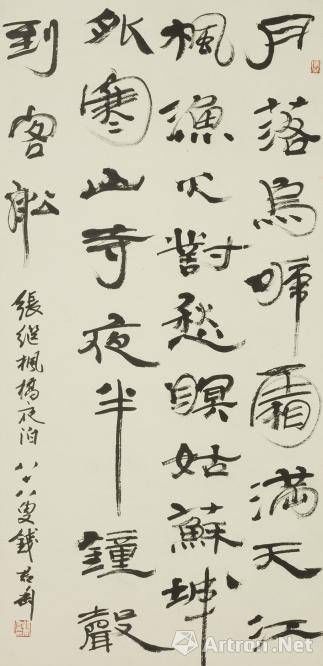 月落烏啼霜滿天江
楓漁火對愁瞑姑蘇城
外寒山寺夜半鐘聲
到客船
張继楓橋夜泊 八十八叟錢君匋
Artron.Net